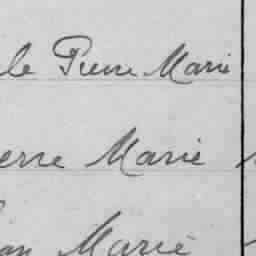 le Pierre Marie
erre Marie
an Marie